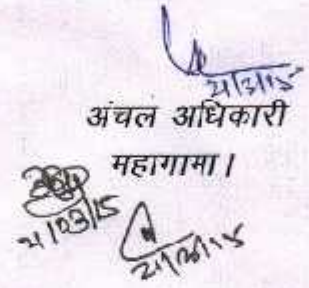 21/3/15
अंचल अधिकारी
महागामा।
21/03/15
21/3/15